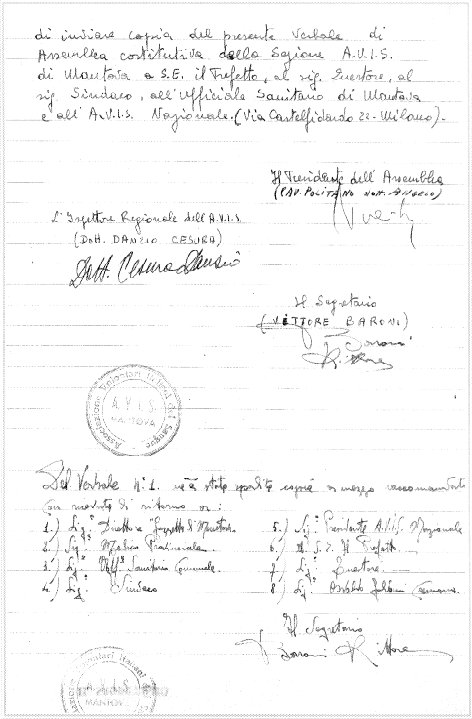 di inviare copia del presente Verbale di
Assemblea costitutiva della Sezione A.V.I.S.
di Mantova a S.E. il Prefetto, al sig. Questore, al
sig. Sindaco, all'Ufficiale Sanitario di Mantova
e all'A.V.I.S. Nazionale. (Via Castelfidardo 22 - Milano).
Il Presidente dell'Assemblea
(CAV. POLITANO ANGELO)
L'Ispettore Regionale dell'A.V.I.S
(Dott. DANZIO CESURA)
Dott. Cesura Danzio
Il Segretario
(VITTORE BARONI)
Baroni
Vittore
Associazione Volontari Italiani del Sangue
A.V.I.S.
MANTOVA
Del Verbale N° 1. è stato spedito copia a mezzo raccomandata
con ricevuta di ritorno a:
1.) Sig. Direttore "Gazzetta di Mantova"
2.) Sig. Medico Provinciale
3.) Uff. Sanitario Comunale
4.) Sig. Sindaco
5.) Sig. Presidente A.V.I.S. Nazionale
6.) S.E. Il Prefetto
7.) Sig. Questore
8.) Sig.
Il Segretario
Baroni Vittore
A.V.I.S.
MANTOVA